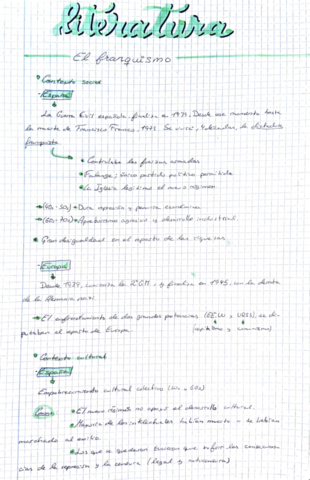 literatura
El franquismo
• Contexto social
- España
La Guerra Civil española finaliza en 1939. Desde ese momento hasta
la muerte de Francisco Franco, 1975. Se vivió, 4 décadas, de dictadura
franquista
• Controlaba las fuerzas armadas
• Falange; único partido político permitido
• La Iglesia legitima el nuevo régimen
(40s - 50s) • Dura represión y penuria económica
(60s - 70s) • Aperturismo y desarrollo industrial.
• Gran desigualdad en el reparto de las riquezas
- Europa
Desde 1939, comienza la II GM y finaliza en 1945, con la derrota
de la Alemania nazi
• El enfrentamiento de dos grandes potencias (EEUU y URSS), se dis-
putaban el reparto de Europa. (capitalismo y comunismo)
• Contexto cultural
- España
Empobrecimiento cultural colectivo
• El nuevo régimen no apoyó el desarrollo cultural.
• Mayoría de los intelectuales habían muerto o se habían
marchado al exilio
• Los que se quedaron tuvieron que sufrir las consecuen-
cias de la represión y la censura (legal y